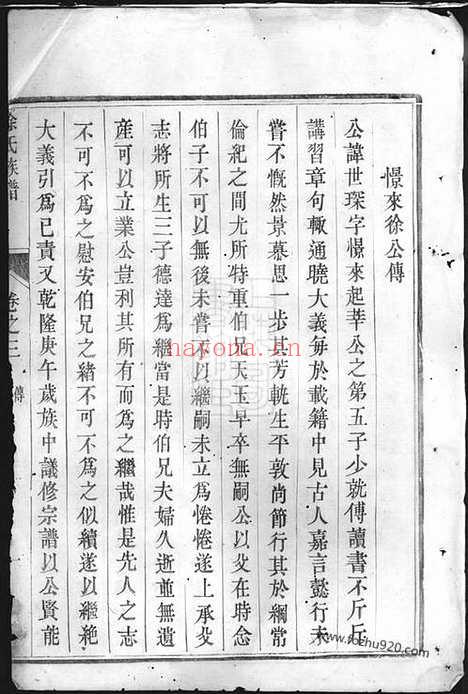 憬來徐公傳
公諱世琛字憬來起莘公之第五子少就傅讀書不斤斤
講習章句輒通曉大義每於載籍中見古人嘉言懿行未
嘗不慨然景慕思一步其芳軌生平敦尚節行其於綱常
倫紀之間尤所特重伯兄天玉早卒無嗣公以父在時念
伯子不可以無後未嘗不以繼嗣未立為惓惓遂上承父
志將所生三子德達為繼當是時伯兄夫婦久逝並無遺
產可以立業公豈利其所有而為之繼哉惟是先人之志
不可不為之慰安伯兄之緒不可不為之似續遂以繼絶
大義引為已責又乾隆庚午歲族中議修宗譜以公賢能
徐氏族譜
卷之三
傳
hayona.cn
www.foezhu920.com